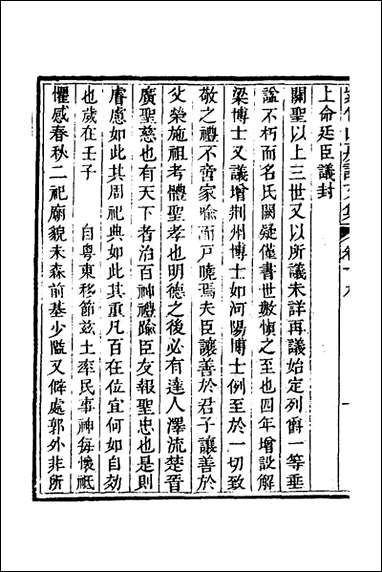 上命廷臣議封
關聖以上三世又以所議未詳再議始定列爵一等垂
諡不朽而名氏闕疑僅書世數慎之至也四年增設解
梁博士又議增荆州博士如河陽博士例至於一切致
敬之禮不啻家喻而戶曉焉夫臣讓善於君子讓善於
父榮施祖考體聖孝也明德之後必有達人澤流楚晉
廣聖慈也有天下者治百神禮隂臣友報聖忠也是則
睿慮如此其周祀典如此其重凡百在位宜何如自効
也歲在壬子　自粤東移節兹土率民事神每懷祗
懼感春秋二祀廟貌未森前基少隘又僻處郭外非所